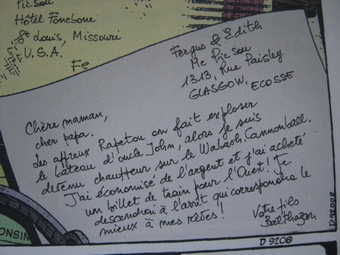 Picsou
Hôtel Fonebone
St Louis, Missouri
U.S.A.
Fe
Fergus & Edith
Mc Picsou
1313, Rue Paisley
GLASGOW, ECOSSE
Chère maman,
cher papa,
des affreux Rapetou on fait exploser
le bateau d'oncle John, alors je suis
devenu chauffeur sur le Wabash Cannonball.
J'ai économisé de l'argent et j'ai acheté
un billet de train pour l'Ouest! Je
descendrai à l'arrêt qui correspondra le
mieux à mes rêves!
Votre fils
Balthazar,
ONSIN
D 9208
D 92008